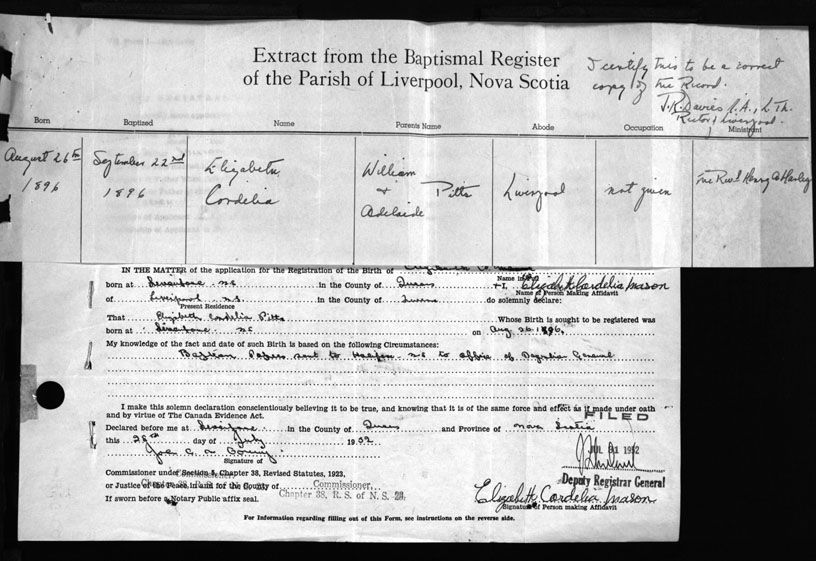 Extract from the Baptismal Register
of the Parish of Liverpool, Nova Scotia
I certify this to be a correct
copy of the Record.
Davies L.Th.
Rector, Liverpool.
Born Baptized Name Parents Name Abode Occupation Ministrant
August 26th 1896
September 22nd 1896
Elizabeth Cordelia
William & Adelaide Pitts
Liverpool
not given
The Revd Henry
IN THE MATTER of the application for the Registration of the Birth of
born at Liverpool N.S. in the County of Queens I, Elizabeth Cordelia Mason
Name of Person Making Affidavit
of Liverpool N.S. in the County of Queens do solemnly declare:
Present Residence
That Elizabeth Cordelia Pitts Whose Birth is sought to be registered was
born at Liverpool N.S. on Aug 26. 1896.
My knowledge of the fact and date of such Birth is based on the following Circumstances:
Baptism Papers sent to Halifax N.S. to office of General
I make this solemn declaration conscientiously believing it to be true, and knowing that it is of the same force and effect as if made under oath
and by virtue of The Canada Evidence Act.
FILED
Declared before me at Liverpool in the County of Queens and Province of Nova Scotia
this day of July 1952
JUL 31 1952
Signature of
Deputy Registrar General
Commissioner under Section 5, Chapter 38, Revised Statutes, 1923,
or Justice of the Peace in and for the County of
Commissioner,
Chapter 38, R. S. of N. S.
If sworn before a Notary Public affix seal.
Elizabeth Cordelia Mason
Signature of Person making Affidavit
For Information regarding filling out of this Form, see instructions on the reverse side.